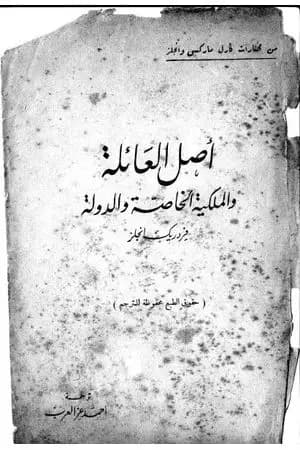 من مختارات كارل ماركس وانجلز
أصل العائلة
والملكية الخاصة والدولة
فردريك انجلز
( حقوق الطبع محفوظة للمترجم )
ترجمة
احمد عز العرب